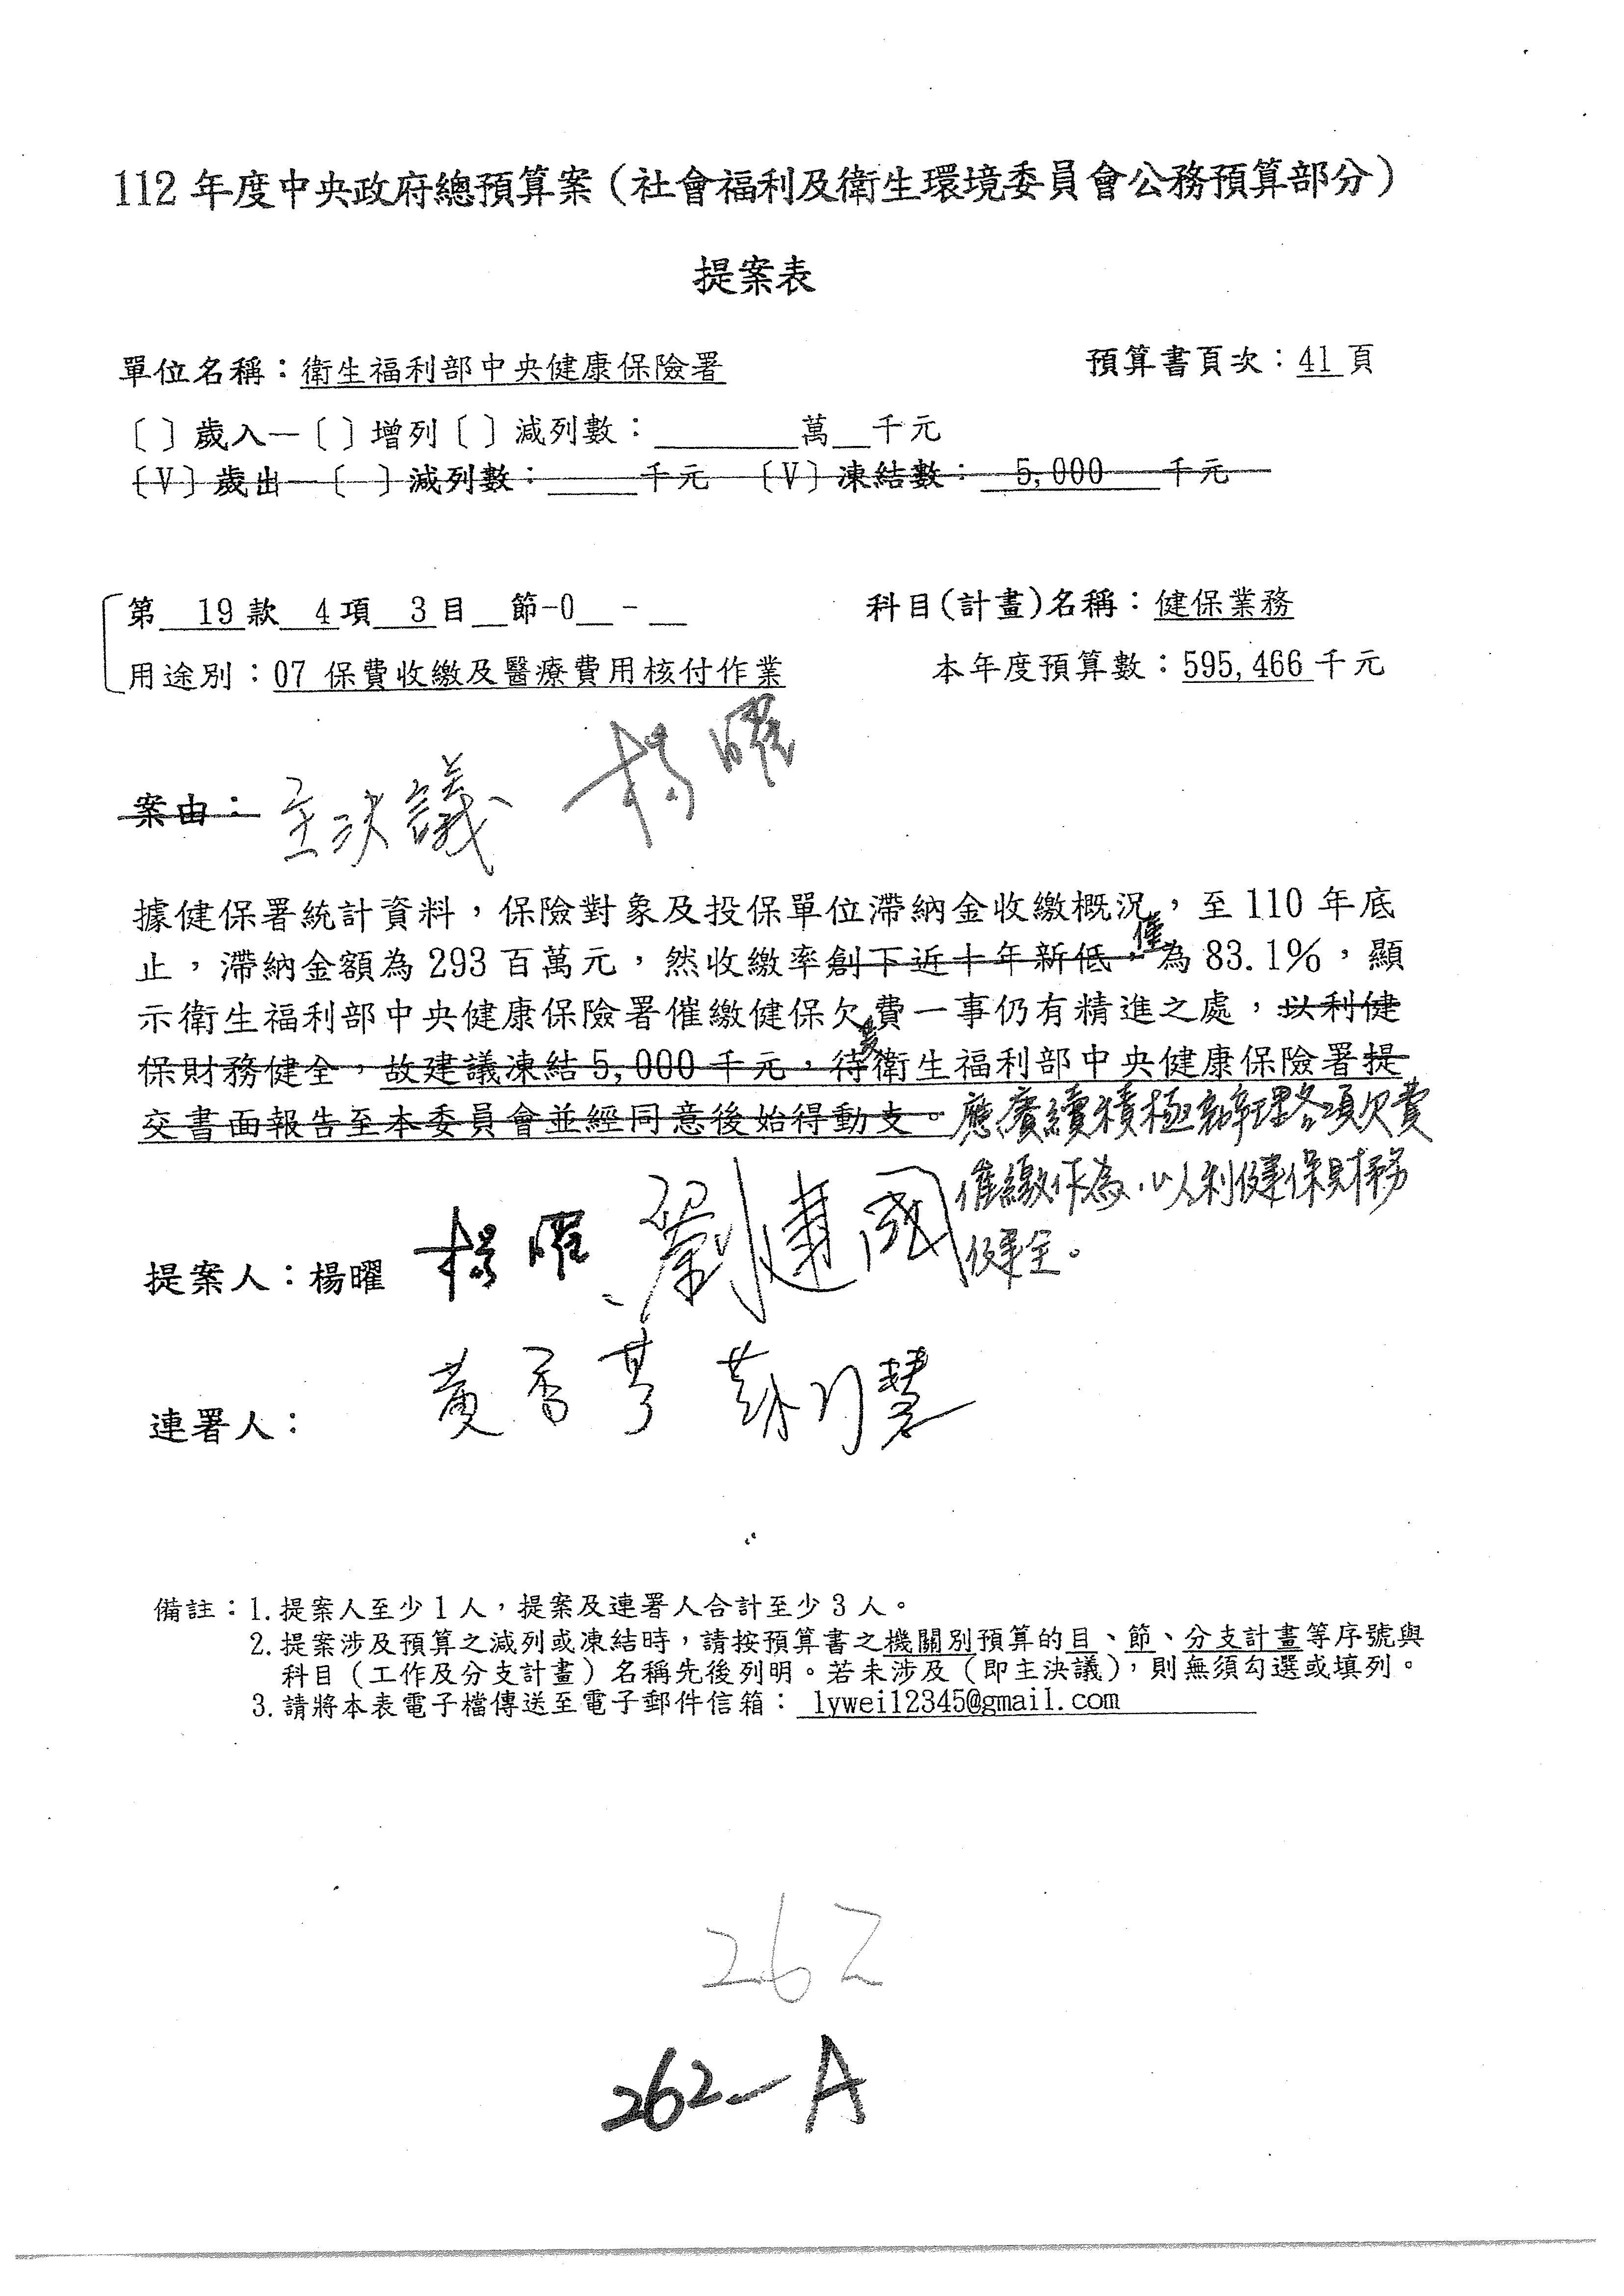 112 年度中央政府總預算案（社會福利及衛生環境委員會公務預算部分）
提案表
單位名稱：衛生福利部中央健康保險署 預算書頁次：41 頁
〔 〕歲入—〔 〕增列〔 〕減列數：________萬__千元
〔V〕歲出—〔 〕減列數：_____千元 〔V〕凍結數： 5,000 千元
第 19 款 4 項 3 目__節-0__-__ 科目(計畫)名稱：健保業務
用途別：07 保費收繳及醫療費用核付作業 本年度預算數：595,466 千元
案由： 主決議 楊曜
據健保署統計資料，保險對象及投保單位滯納金收繳概況，至 110 年底
止，滯納金額為 293 百萬元，然收繳率創下近十年新低，僅為 83.1%，顯
示衛生福利部中央健康保險署催繳健保欠費一事仍有精進之處，以利健
保財務健全，故建議凍結 5,000 千元，待衛生福利部中央健康保險署提
交書面報告至本委員會並經同意後始得動支。應賡續積極辦理各項欠費
催繳作為，以利健保財務
健全。
提案人：楊曜 楊曜 劉建國
連署人： 黃秀芳
備註：1. 提案人至少 1 人，提案及連署人合計至少 3 人。
2. 提案涉及預算之減列或凍結時，請按預算書之機關別預算的目、節、分支計畫等序號與
科目（工作及分支計畫）名稱先後列明。若未涉及（即主決議），則無須勾選或填列。
3. 請將本表電子檔傳送至電子郵件信箱： lywei12345@gmail.com
262
262-A